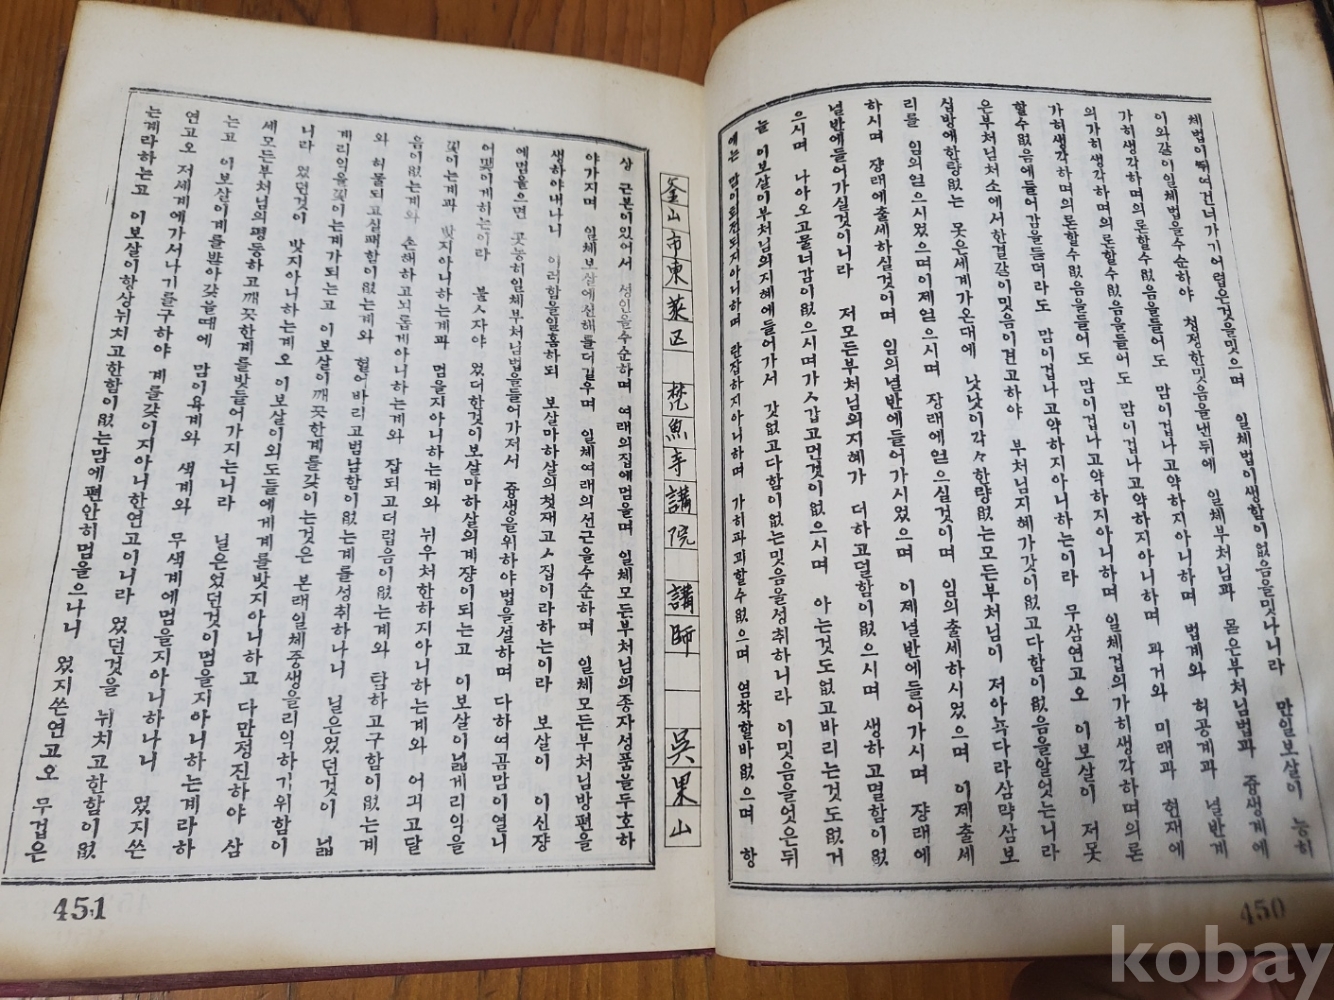 체법이뛰여건너가기어렵은것을믿으며 일체법이생함이없음을믿나니라 만일보살이 능히
이와갈이일체법을수순하야 청정한믿음을낸뒤에 일체부처님과 몯은부처님법과 즁생계에
가히생각하며의론할수없음을들어도 맘이겁나고약하지아니하며 법계와 허공계과 널반계
의가히생각하며의론할수없음을들어도 맘이겁나고약하지아니하며 과거와 미래과 현재에
가히생각하며의론할수없음을들어도 맘이겁나고약하지아니하며 일체겁의가히생각하며의론
할수없음에들어감을들더라도 맘이겁나고약하지아니하는이라 무삼연고오 이보살이 저못
은부처님처소에서한결같이믿음이견고하야 부처님지혜가갓이없고다함이없음을알엇는니라
십방에한량없는 못은세계가온대에 낫낫이각々한량없는모든부처님이 저아뇩다라삼먁삼보
리를 임의얻으시었으며이제얻으시며 쟝래에얻으실것이며 임의출세하시었으며 이제출세
하시며 쟝래에출세하실것이며 임의널반에들어가시었으며 이제널반에들어가시며 쟝래에
널반에들어가실것이니라 저모든부처님의지혜가 더하고덜함이없으시며 생하고멸함이없
으시며 나아오고물너감이없으시며가ᄉ갑고먼것이없으시며 아는것도없고바리는것도없거
늘 이보살이부처님의지혜에들어가서 갓없고다함이없는믿음을성취하니라 이믿음을엇은뒤
에는 맘이퇴전되지아니하며 란잡하지아니하며 가히파괴할수없으며 염착할바없으며 항
450
釜山市東萊区 梵魚寺講院 講師 吳果山
상 근본이있어서 성인을수순하며 여래의집에멈을며 일체모든부처님의종자성품을두호하
야가지며 일체보살에신해를더길우며 일체여래의선근을수순하며 일체모든부처님방편을
생하야내나니 이러함을일홈하되 보살마하살의첫재고ᄉ집이라하는이라 보살이 이신쟝
에멈을으면 곳능히일체부처님법을들어가저서 즁생을위하야법을셜하며 다하여곰맘이열니
어맺이게히는이라 불ᄉ자야 었더한것이보살마하살의계쟝이되는고 이보살이넓게리익을
꽃이는계과 받지아니하는계과 멈을지아니하는계와 뉘우처한하지아니하는계와 어긔고달
음이없는계와 손해하고뇌롭게아니하는계와 잡되고더럽음이없는계와 탐하고구함이없는계
와 허물되고실패함이없는계와 헐어바리고범남함이없는계를성취하나니 널은었던것이 넓
게리익을꽃이는계가되는고 이보살이깨끗한계를갖이는것은 본래일체중생을리익하기위함이
니라 었던것이 받지아니하는계오 이보살이외도들에게계를받지아니하고 다만정진하야 삼
세모든부처님의평등하고깨끗한계를받들어가지는니라 널은었던것이멈을지아니하는계라하
는고 이보살이계를받아갖을때에 맘이욕계와 색계와 무색계에멈을지아니하나니 었지쓴
연고오 저세계에가서나기를구하야 계를갖이지아니한연고이니라 었던것을 뉘치고한함이없
는계라하는고 이보살이항상뉘치고한함이없는맘에편안히멈을으나니 었지쓴연고오 무겁은
451
kobay